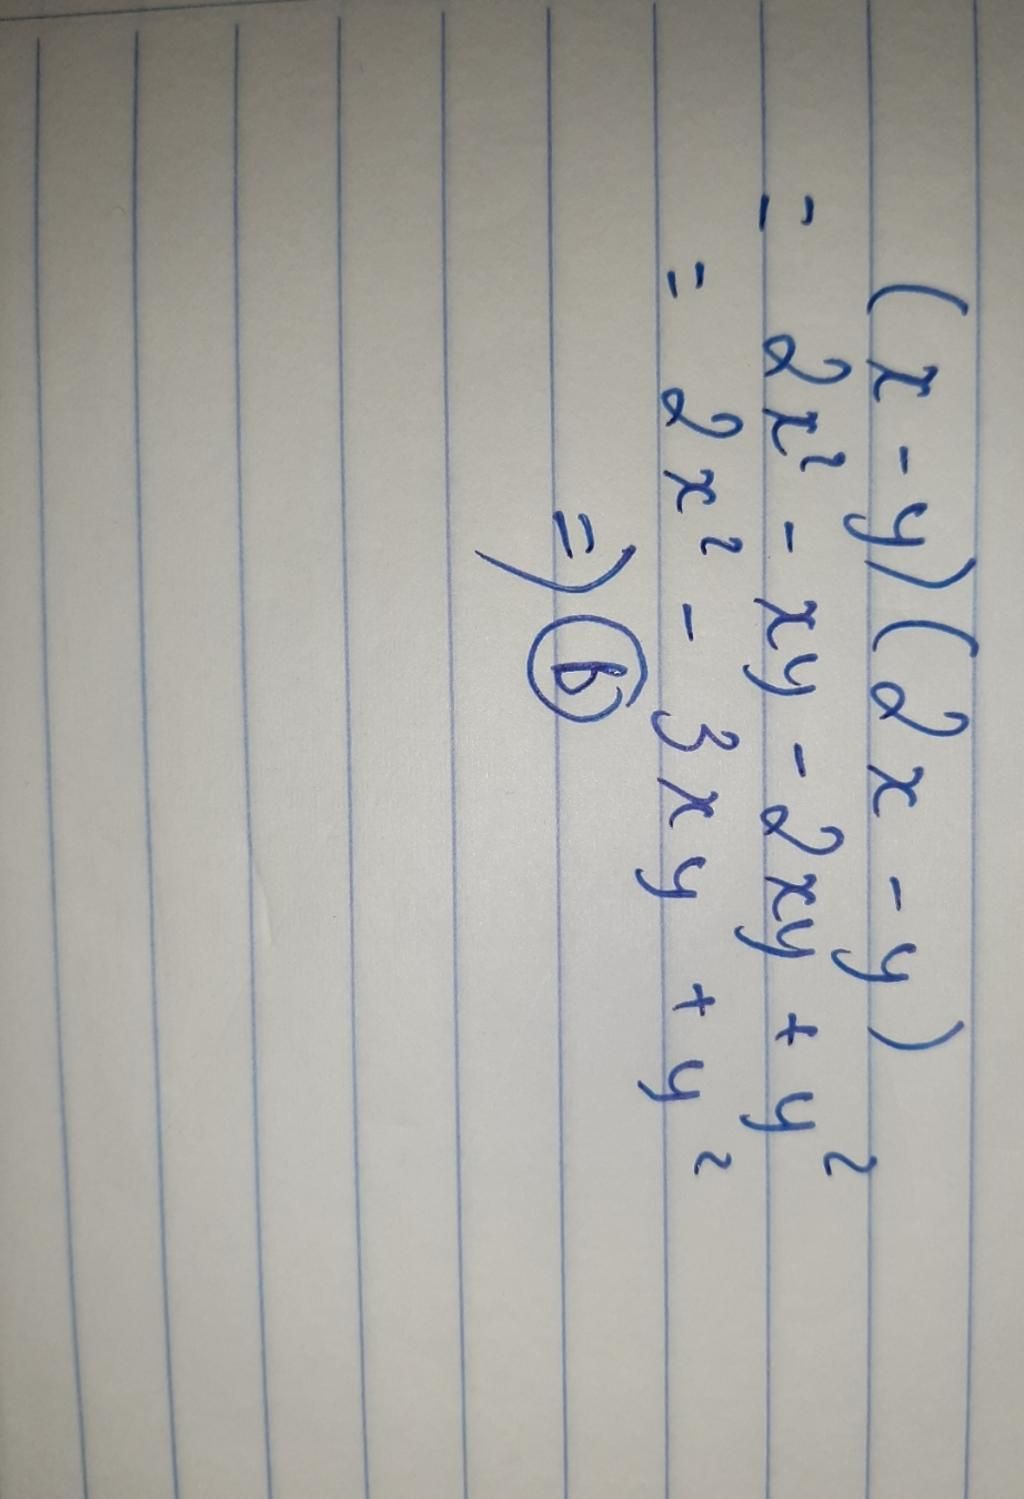 (x - y)(2x - y)
= 2x² - xy - 2xy + y²
= 2x² - 3xy + y²
=) b